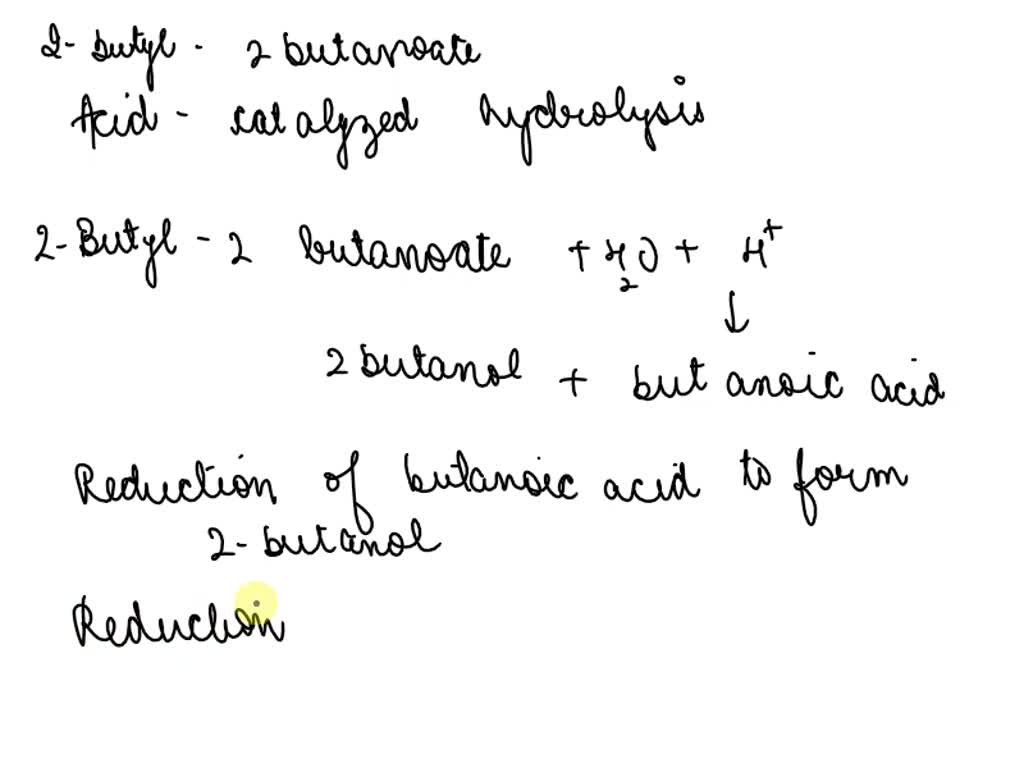 2- butyl - 2 butanoate
Acid - catalyzed hydrolysis
2- Butyl - 2 butanoate + H2O + H+
↓
2 butanol + butanoic acid
Reduction of butanoic acid to form
2- butanol
Reduction